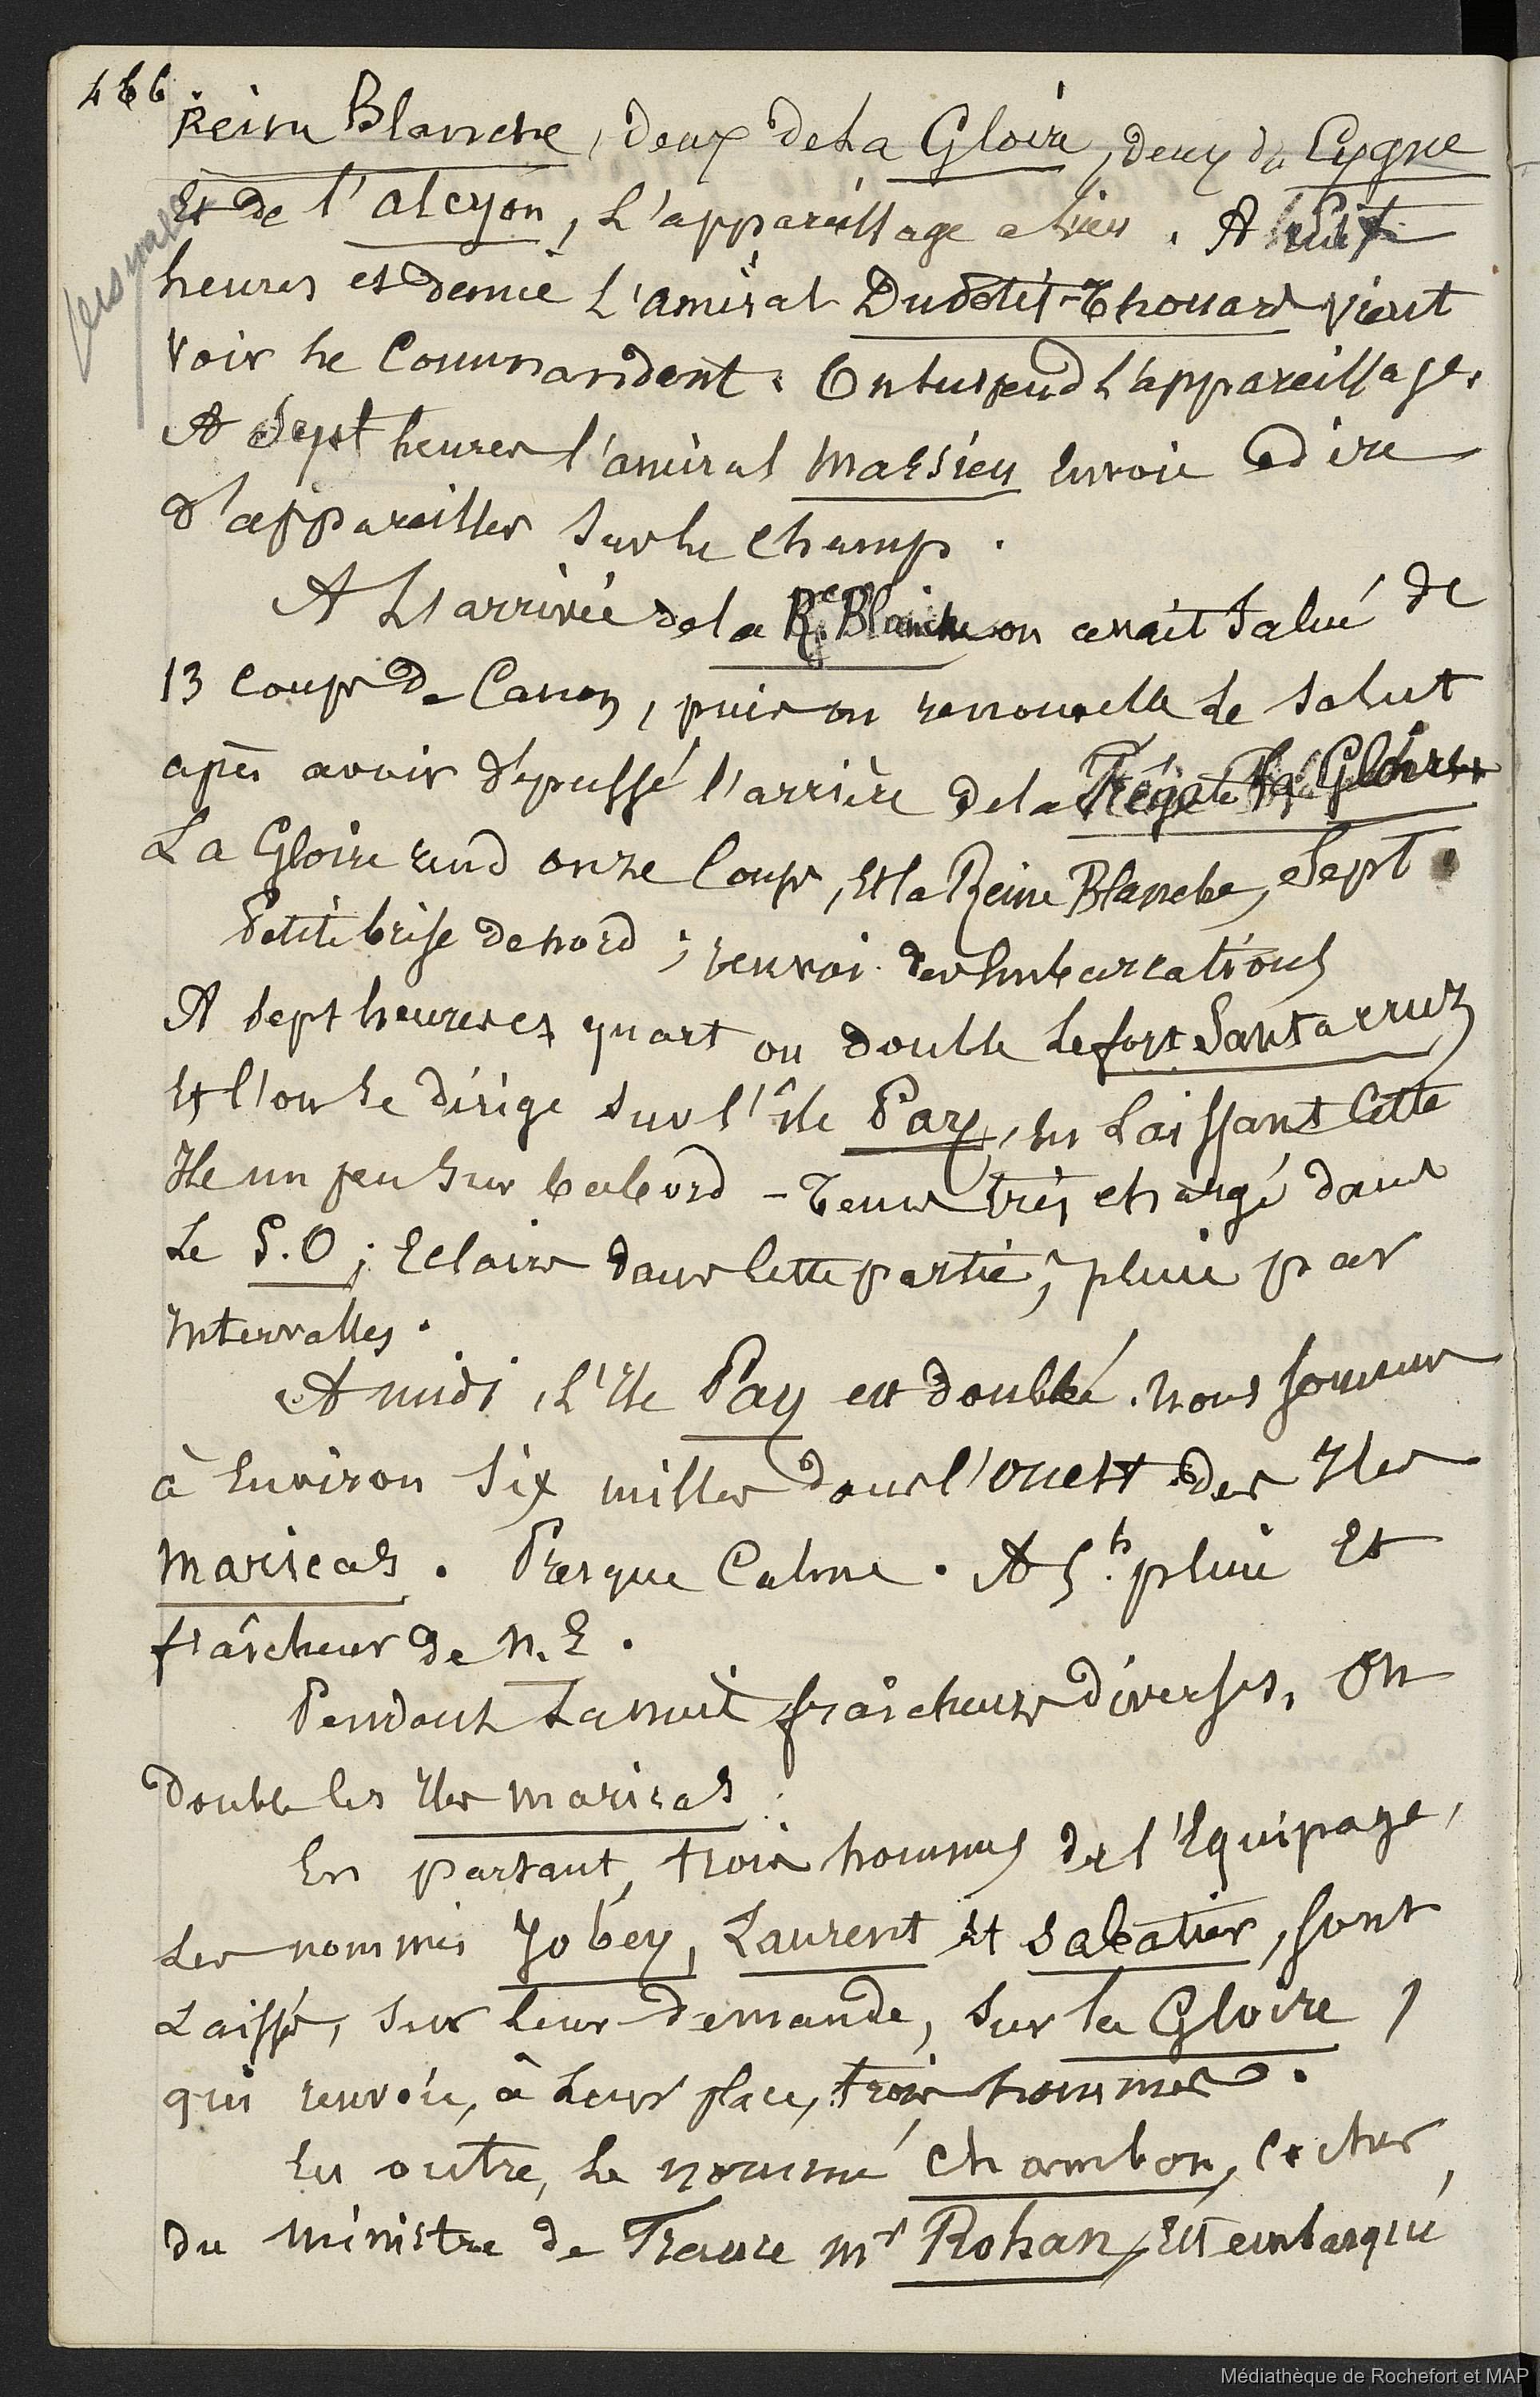 466
Reine Blanche, deux de La Gloire, deux du Cygne
Et de l'Alcyon, L'appareillage a lieu. A huit
heures et demie L'amiral Dupetit-Thouars vient
Voir Le Commandant. On suspend L'appareillage.
A Sept heures l'amiral Massieu Envoie dire
d'appareiller Sur Le Champ.
A L'arrivée de la Rne Blanche on avait Salué de
13 Coups de Canon, puis on renouvelle Le Salut
après avoir dépassé l'arrière de la Frégate La Gloire.
La Gloire rend onze Coups, Et la Reine Blanche, Sept.
Petite brise de nord ; renvoi des Embarcations
A Sept heures et quart on double Le fort Santa Cruz
Et l'on Se dirige Sur l'île Pay, En Laissant Cette
Ile un peu Sur babord - Tems très chargé dans
Le S.O ; Eclairs dans Cette partie ; pluie par
Intervalles.
A midi, L'Ile Pay est doublée. Nous Sommes
à Environ Six milles dans l'ouest des Iles
Maricas. Presque Calme. A 5h. pluie Et
fraîcheur de N.E.
Pendant La nuit fraîcheurs diverses, On
double les Iles Maricas.
En partant, trois hommes de l'Equipage,
Les nommés Jobey, Laurent Et Sabatier, Sont
Laissés, Sur Leur demande, Sur la Gloire,
qui renvoie, à Leur place, trois hommes.
En outre, Le nommé Chambon, Cocher
du Ministre de France Mr Rohan, Est embarqué
Médiathèque de Rochefort et MAP